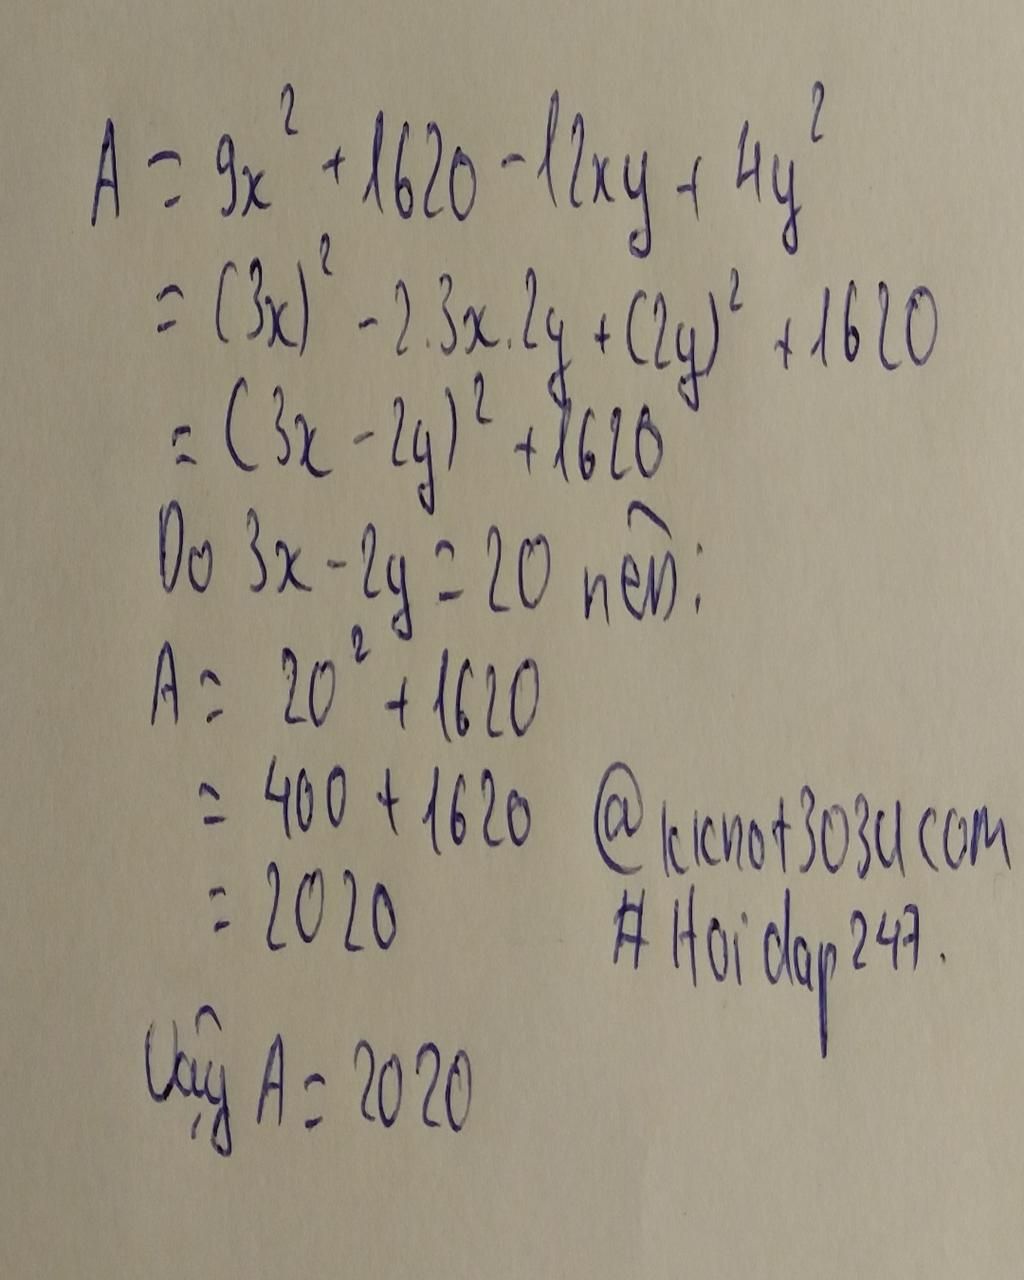 A = 9x² + 1620 - 12xy + 4y²
= (3x)² - 2.3x.2y + (2y)² + 1620
= (3x - 2y)² + 1620
Do 3x - 2y = 20 nên:
A = 20² + 1620
= 400 + 1620
= 2020
@kknot303u com
# Hoi dap 247.
Vậy A = 2020